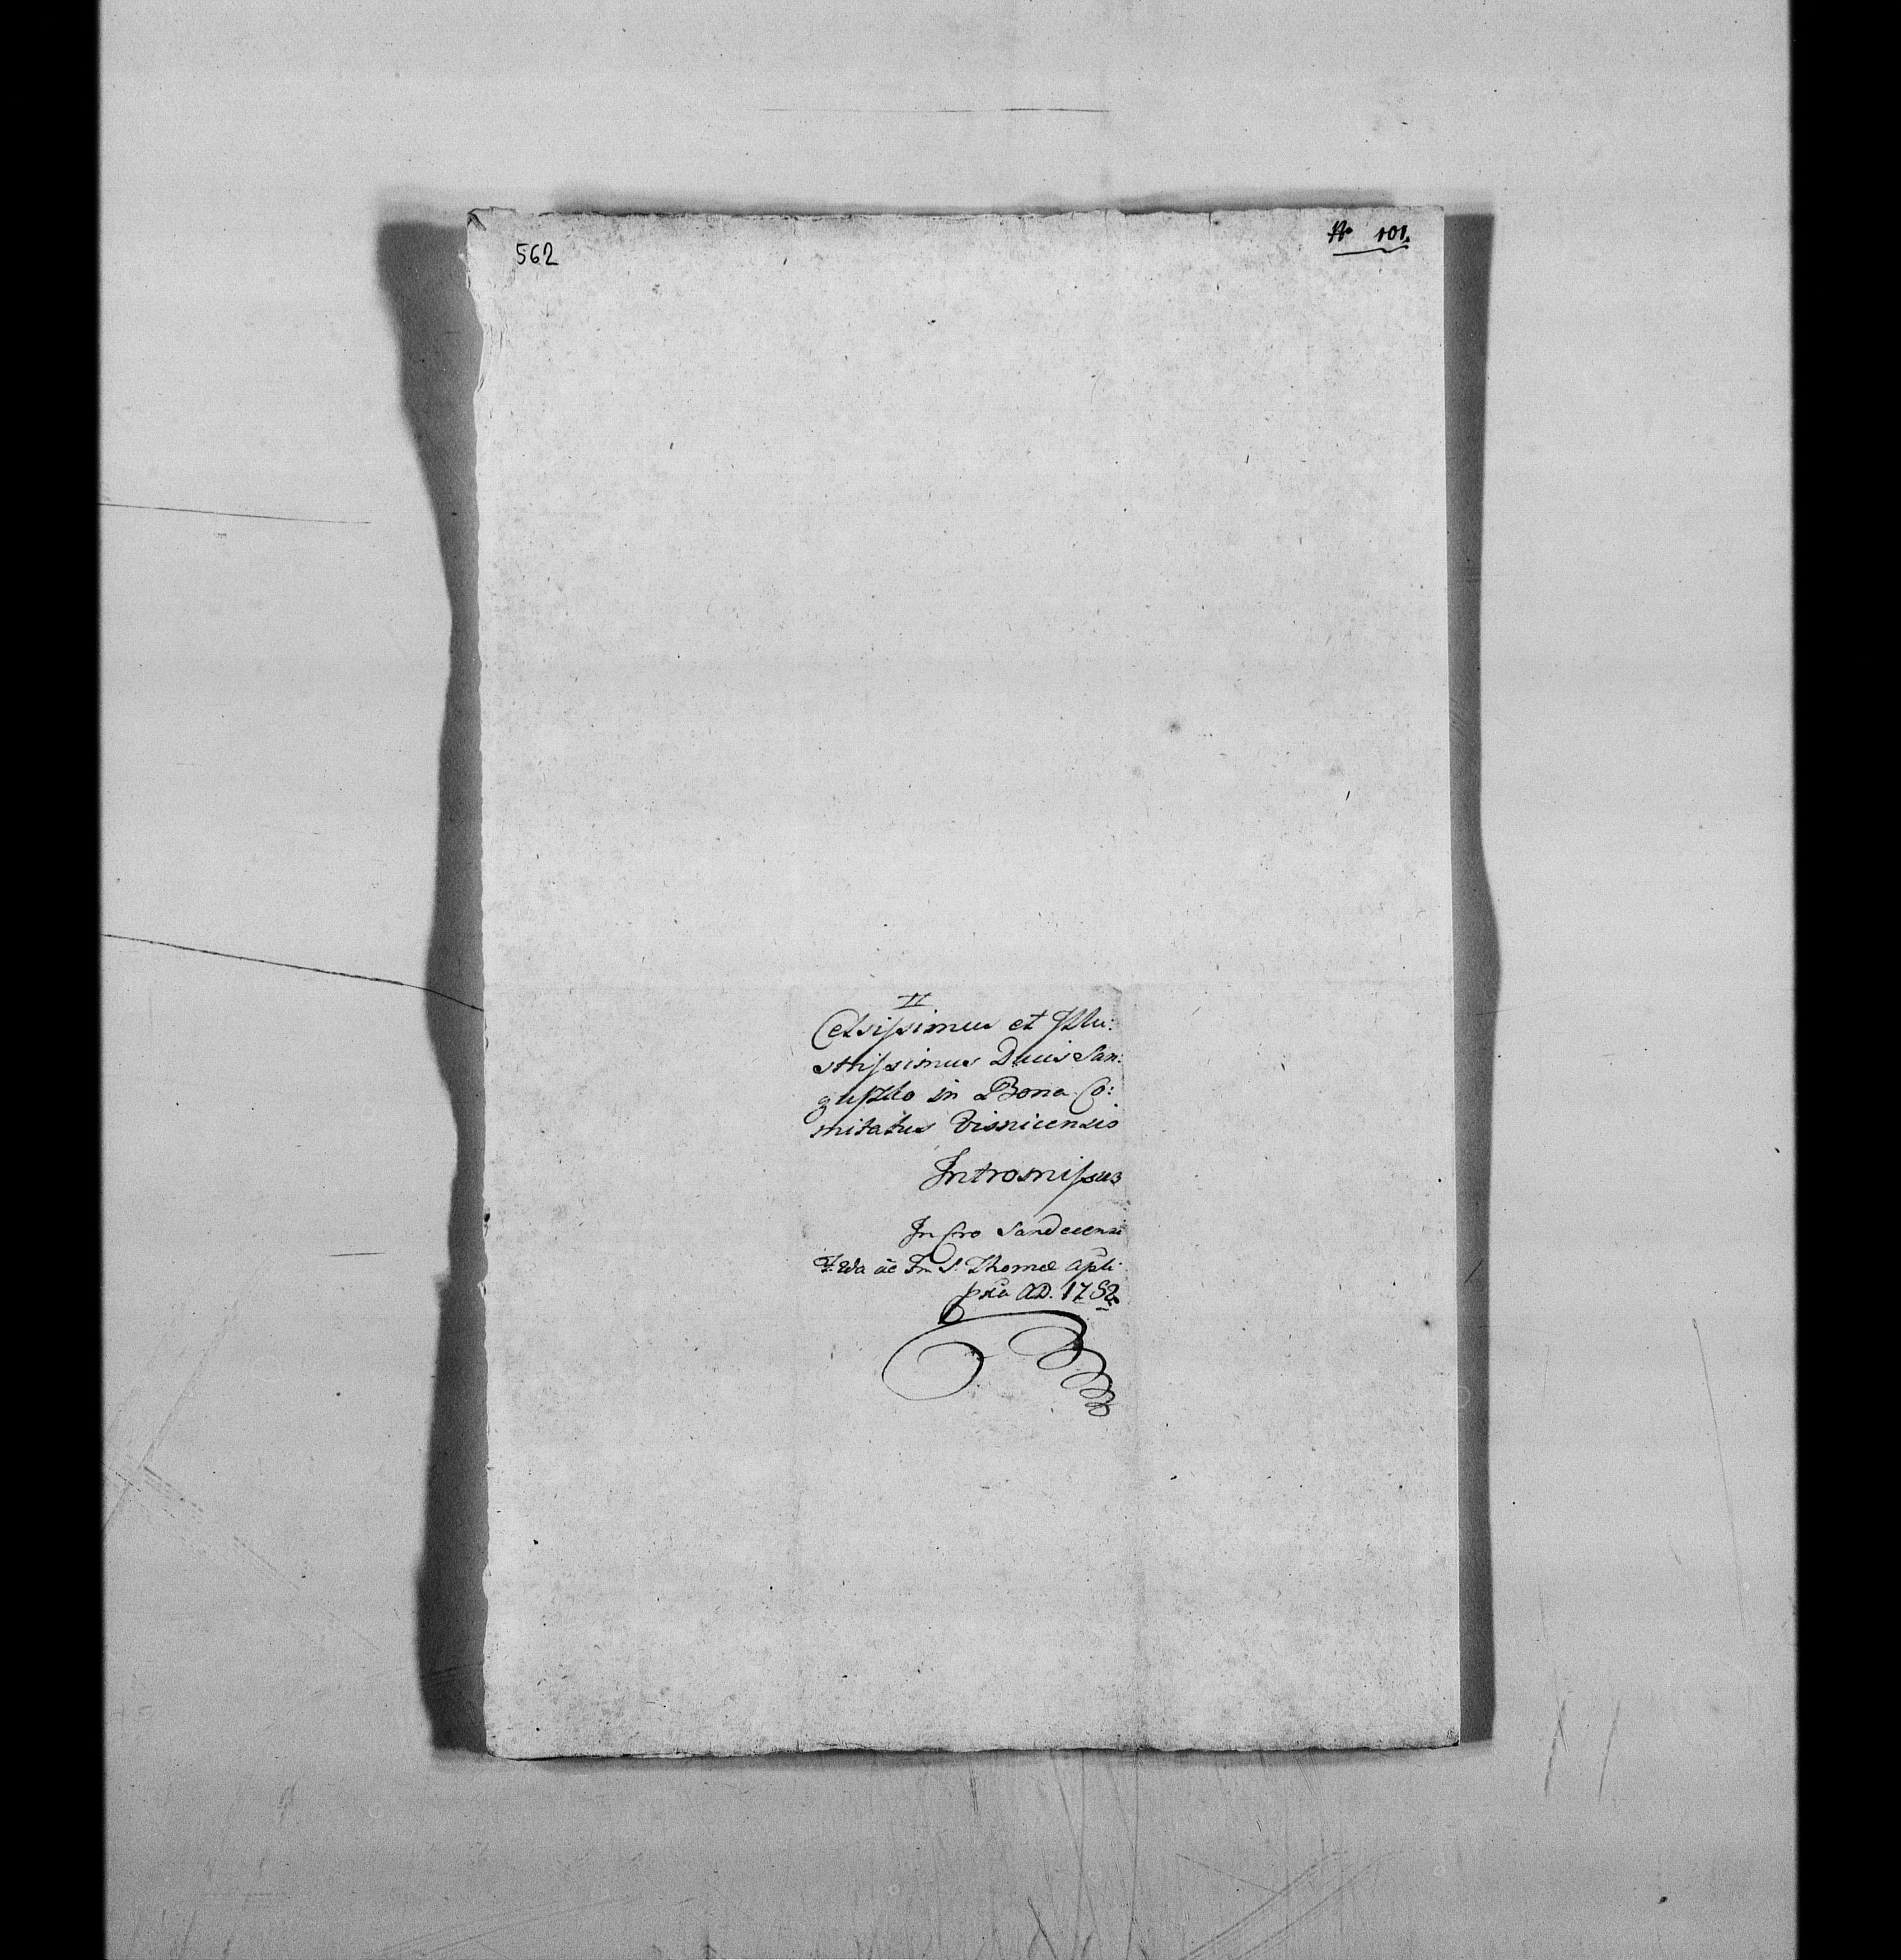 562
No 101.
II
Celsissimus et Illu:
strissimus Ducis San:
guszko in Bona Co:
mitatus Visnicensis
Intromissus
In Cro Sandecensi
Fer: 5ta ae Fm S. Thomæ Apli
pxa AD. 1752